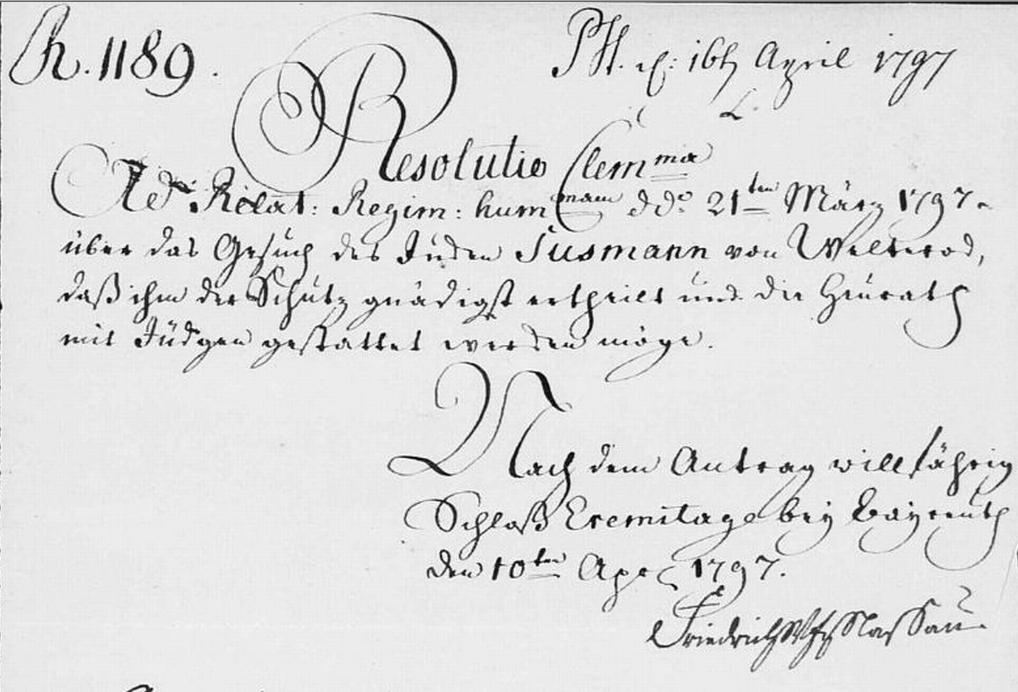 R. 1189.
16t April 1797
Resolutio Clem<sup>ma</sup>
Ad Relat: Regim: hum<sup>mam</sup> dd<sup>o</sup> 21<sup>ten</sup> März 1797.
über das Gesuch des Juden Susmann von Welterod,
daß ihm der Schutz gnädigst ertheilt und die Heurath
mit Jüdgen gestattet werden möge.
Nach dem Antrag willfährig
Schloß Eremitage bey Bayreuth
den 10<sup>ten</sup> Apr. 1797.
Friedrich W F z Nassau